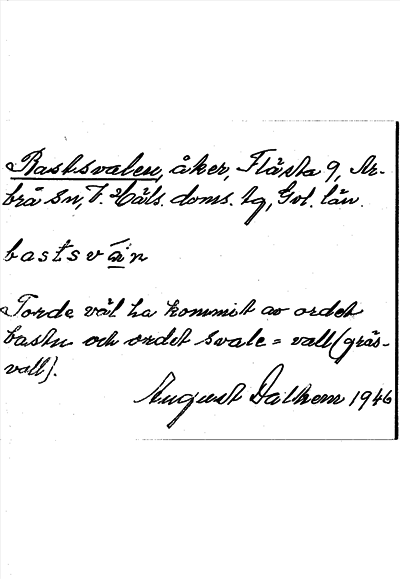 Bastsvalen, åker, Flästa 9, Ar-
brå sn, V. Häls. doms. tg, Gvl. län.
bastsván
Torde väl ha kommit av ordet
bastu och ordet svale = vall (gräs-
vall).
August Dalhem 1946